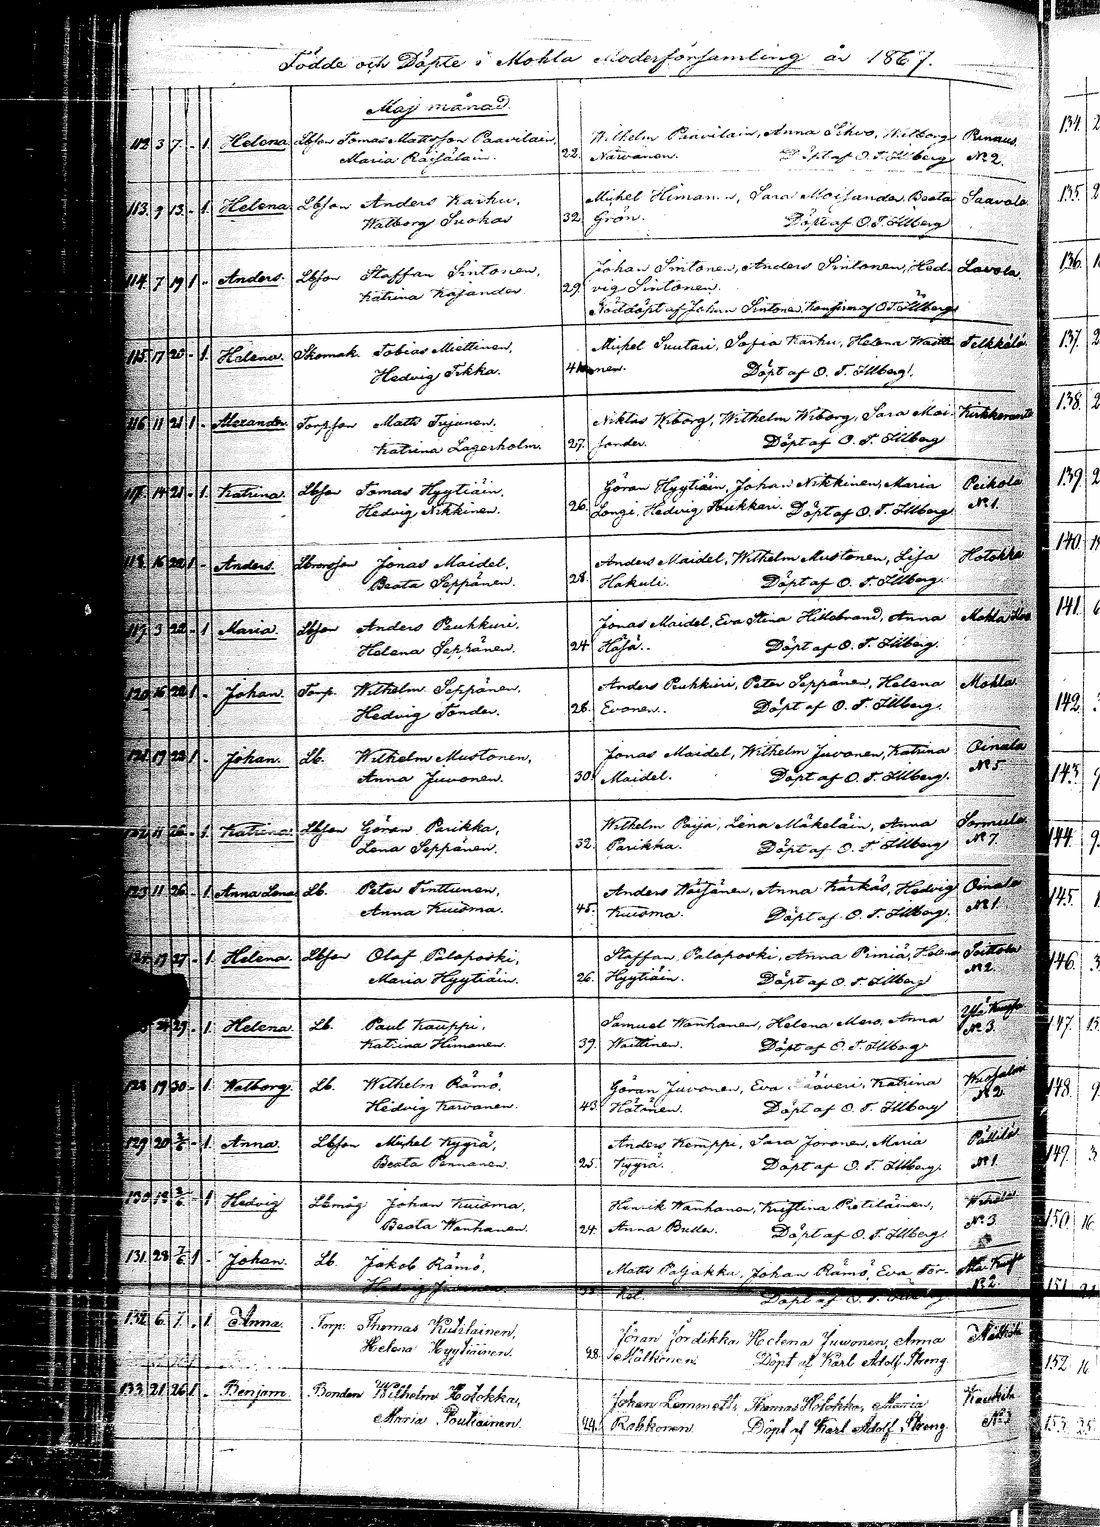 Födde och Döpte i Mohla Moderförsamling år 1867.
Maj månad
112. 3 7. - 1. Helena Lbfson Tomas Mattsson Paavilain, Wilhelm Paavilain, Anna Sihvo, Walborg Pennus
Maria Räisälain. 22. Narvanen. Döpt af O. T. Illberg N:o 2.
113. 9 13. - 1. Helena Lbfson Anders Karhu, Mickel Himanen, Sara Moisander, Beata Saavola
Walborg Suokas 32. Grön. Döpt af O. T. Illberg
114. 7 19 1 - Anders. Lbfson Staffan Sintonen, Johan Sintonen, Anders Sintonen, Hed- Lavola
Katrina Kajander 29. vig Sintonen.
Nöddöpt af Johan Sintonen, Konfirm. af O. T. Illberg
115. 17 20 - 1. Helena. Skomak. Tobias Miettinen, Mickel Suutari, Sofia Karhu, Helena Telkkälä
Hedvig Tikka. 41. nen. Döpt af O. T. Illberg.
116. 11 21 1 - Alexander. Torpson Matts Teijonen. Niklas Wiborg, Wilhelm Wiborg, Sara Moi- Kirkkoranta
Katrina Lagerholm. 27. sander. Döpt af O. T. Illberg
117. 14 21 - 1. Katrina. Lbfson Tomas Hyytiäin, Göran Hyytiäin, Johan Nikkinen, Maria Peikola
Hedvig Nikkinen. 26. Longi, Hedvig Hukkari. Döpt af O. T. Illberg N:o 1.
118. 16 22 1 - Anders. Jonas Maidel, Anders Maidel, Wilhelm Mustonen, Lisa Hotokka
Beata Seppänen. 28. Hakuli. Döpt af O. T. Illberg.
119. 3 22 - 1 Maria. Lbfson Anders Peuhkuri, Jonas Maidel, Eva Stina Hildebrand, Anna Mohla
Helena Seppänen. 24 Häjä. Döpt af O. T. Illberg.
120. 16 22 1 - Johan. Torp. Wilhelm Seppänen, Anders Peuhkuri, Peter Seppänen, Helena Mohla
Hedvig Tonder. 28. Evonen. Döpt af O. T. Illberg.
121. 19 23 1 - Johan. Lb. Wilhelm Mustonen, Jonas Maidel, Wilhelm Juvonen, Katrina Oinala
Anna Juvonen. 30. Maidel. Döpt af O. T. Illberg. N:o 5.
122. 11 26. - 1. Katrina. Lbfson Göran Parikka, Wilhelm Paija, Lena Mäkeläin, Anna Sormula
Lena Seppänen. 32. Parikka. Döpt af O. T. Illberg N:o 7.
123. 11 26. - 1 Anna Lena Lb. Peter Tinttunen, Anders Wäisänen, Anna Kärkäs, Hedvig Oinala
Anna Kuisma. 45. Kuisma. Döpt af O. T. Illberg. N:o 1.
124. 19 27 - 1. Helena. Lbfson Olof Palaposki, Staffan Palaposki, Anna Pimiä, Helena Soittola
Maria Hyytiäin. 26. Hyytiäin. Döpt af O. T. Illberg N:o 2.
24 29. - 1. Helena. Lb. Paul Kauppi, Samuel Wanhanen, Helena Mero, Anna Yfla
Katrina Himanen. 39. Waittinen. Döpt af O. T. Illberg N:o 3.
128 19 30 - 1. Walborg. Lb. Wilhelm Rämö, Göran Juvonen, Eva Katrina
Hedvig Karvanen. 43. Hätönen. Döpt af O. T. Illberg N:o 2
129. 20 2/6 - 1. Anna. Lbfson Mickel Kyyrä, Anders Kemppi, Sara Joronen, Maria Pällilä
Beata Pennanen. 25. Kyyrä. Döpt af O. T. Illberg. N:o 1.
130. 18 2/6 - 1 Hedvig Lbmåg Johan Kuisma, Henrik Wanhanen, Kristina Pietiläinen,
Beata Wanhanen. 24. Anna Buller. Döpt af O. T. Illberg. N:o 3
131. 28 7/6 1 - Johan. Lb. Jakob Rämö, Matts Paljakka, Johan Rämö, Eva Tör-
Hedvig Juvonen. Döpt af O. T. Illberg N:o 2.
132. 6. 7. - 1 Anna. Torp. Thomas Kutilainen, Jöran Jördikka Helena Juvonen, Anna
Helena Hyytiäinen. 28. Mälkönen. Döpt af Karl Adolf Streng
133. 21 26 1 - Benjam. Bonden Wilhelm Hotokka, Johan Lemmetti, Thomas Hotokka, Maria Kaukila
Maria Poutiainen. 44. Rahkonen. Döpt af Karl Adolf Streng. N:o 2
134. 2
135. 2
136. 1
137. 2
138. 2
139. 2
140. 19
141. 6
142. 3
143. 9
144. 9.
145. 1
146. 3
147. 15
148. 9
149. 3
150. 16
151. 21
152. 16
153. 25